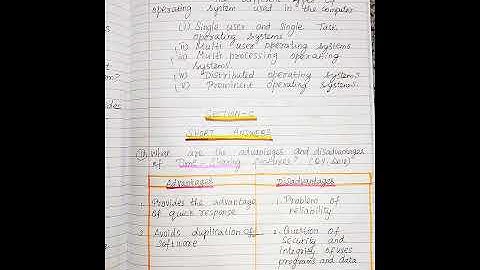 operating system used in the computer
(i) Single user and Single Task
operating systems
(ii) Multi user operating systems
(iii) Multi-processing operating
systems.
(iv) Distributed operating systems
(v) Prominent operating systems.
SECTION-C
SHORT ANSWERS
What are the advantages and disadvantages
of Time-Sharing
Advantages
Disadvantages
1. Provides the advantage
of quick response
2. Avoids duplication of
software
1. Problem of
reliability
2. Question of
security and
integrity of uses
programs and data